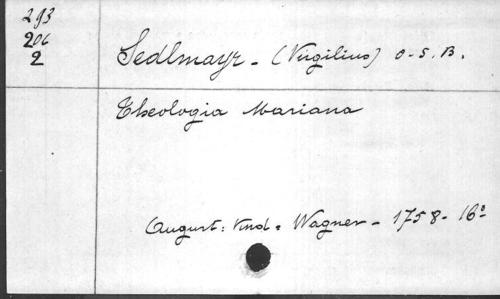 293
206
2
Sedlmayr - (Virgilius) O. S. B.
Theologia Mariana
August: Vind = Wagner - 1758 - 16º